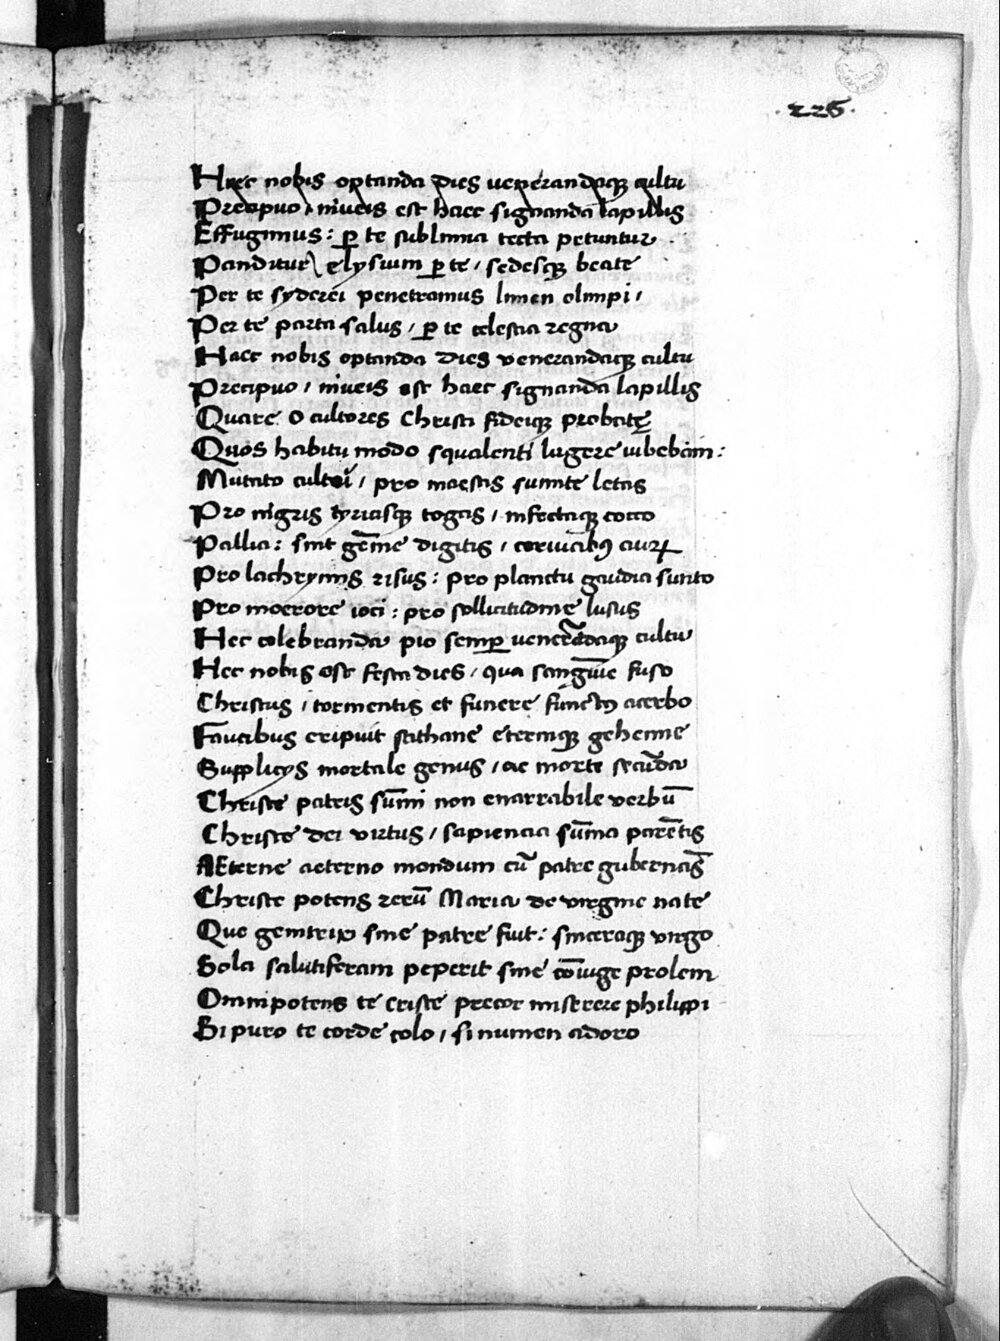 .225.
Haec nobis optanda dies venerandaq; cultu
Precipuo / niveis est haec signanda lapillis
Effugimus : p̲ te sublimia tecta petuntur .
Panditur elysium p̲ te / sedesq; beate
Per te syderei penetramus limen olimpi /
Per te parta salus / p̲ te celestia regna
Haec nobis optanda dies venerandaq; cultu
Precipuo / niveis est haec signanda lapillis
Quare o cultores Christi fideiq; probatę
Quos habitu modo squalenti lugere iubebam :
Mutato cultu / pro maestis sumite letas
Pro nigris tyriasq; togas / infectaq; cocco
Pallia : sint gem̄e digitis / cervicib9 auꝝ
Pro lachrymis risus : pro planctu gaudia sunto
Pro moerore ioci : pro sollicitudine lusus
Hec celebranda pio semp̲ venerādaq; cultu
Hec nobis est festa dies / qua sanguīe fuso
Christus / tormentis et funere functus acerbo
Faucibus eripuit sathane eterneq; gehenne
Supplicijs mortale genus / ac morte secūda
Christe patris sum̄i non enarrabile verbū
Christe dei virtus / sapiencia sum̄a parētis
AEterne aeterno mondum cū patre gubernās
Christe potens rerū Maria de virgine nate
Que genitrix sine patre fuit : sinceraq; virgo
Sola salutiferam peperit sine cōiuge prolem
Omnipotens te criste precor miserere philippi
Si puro te corde colo / si numen adoro